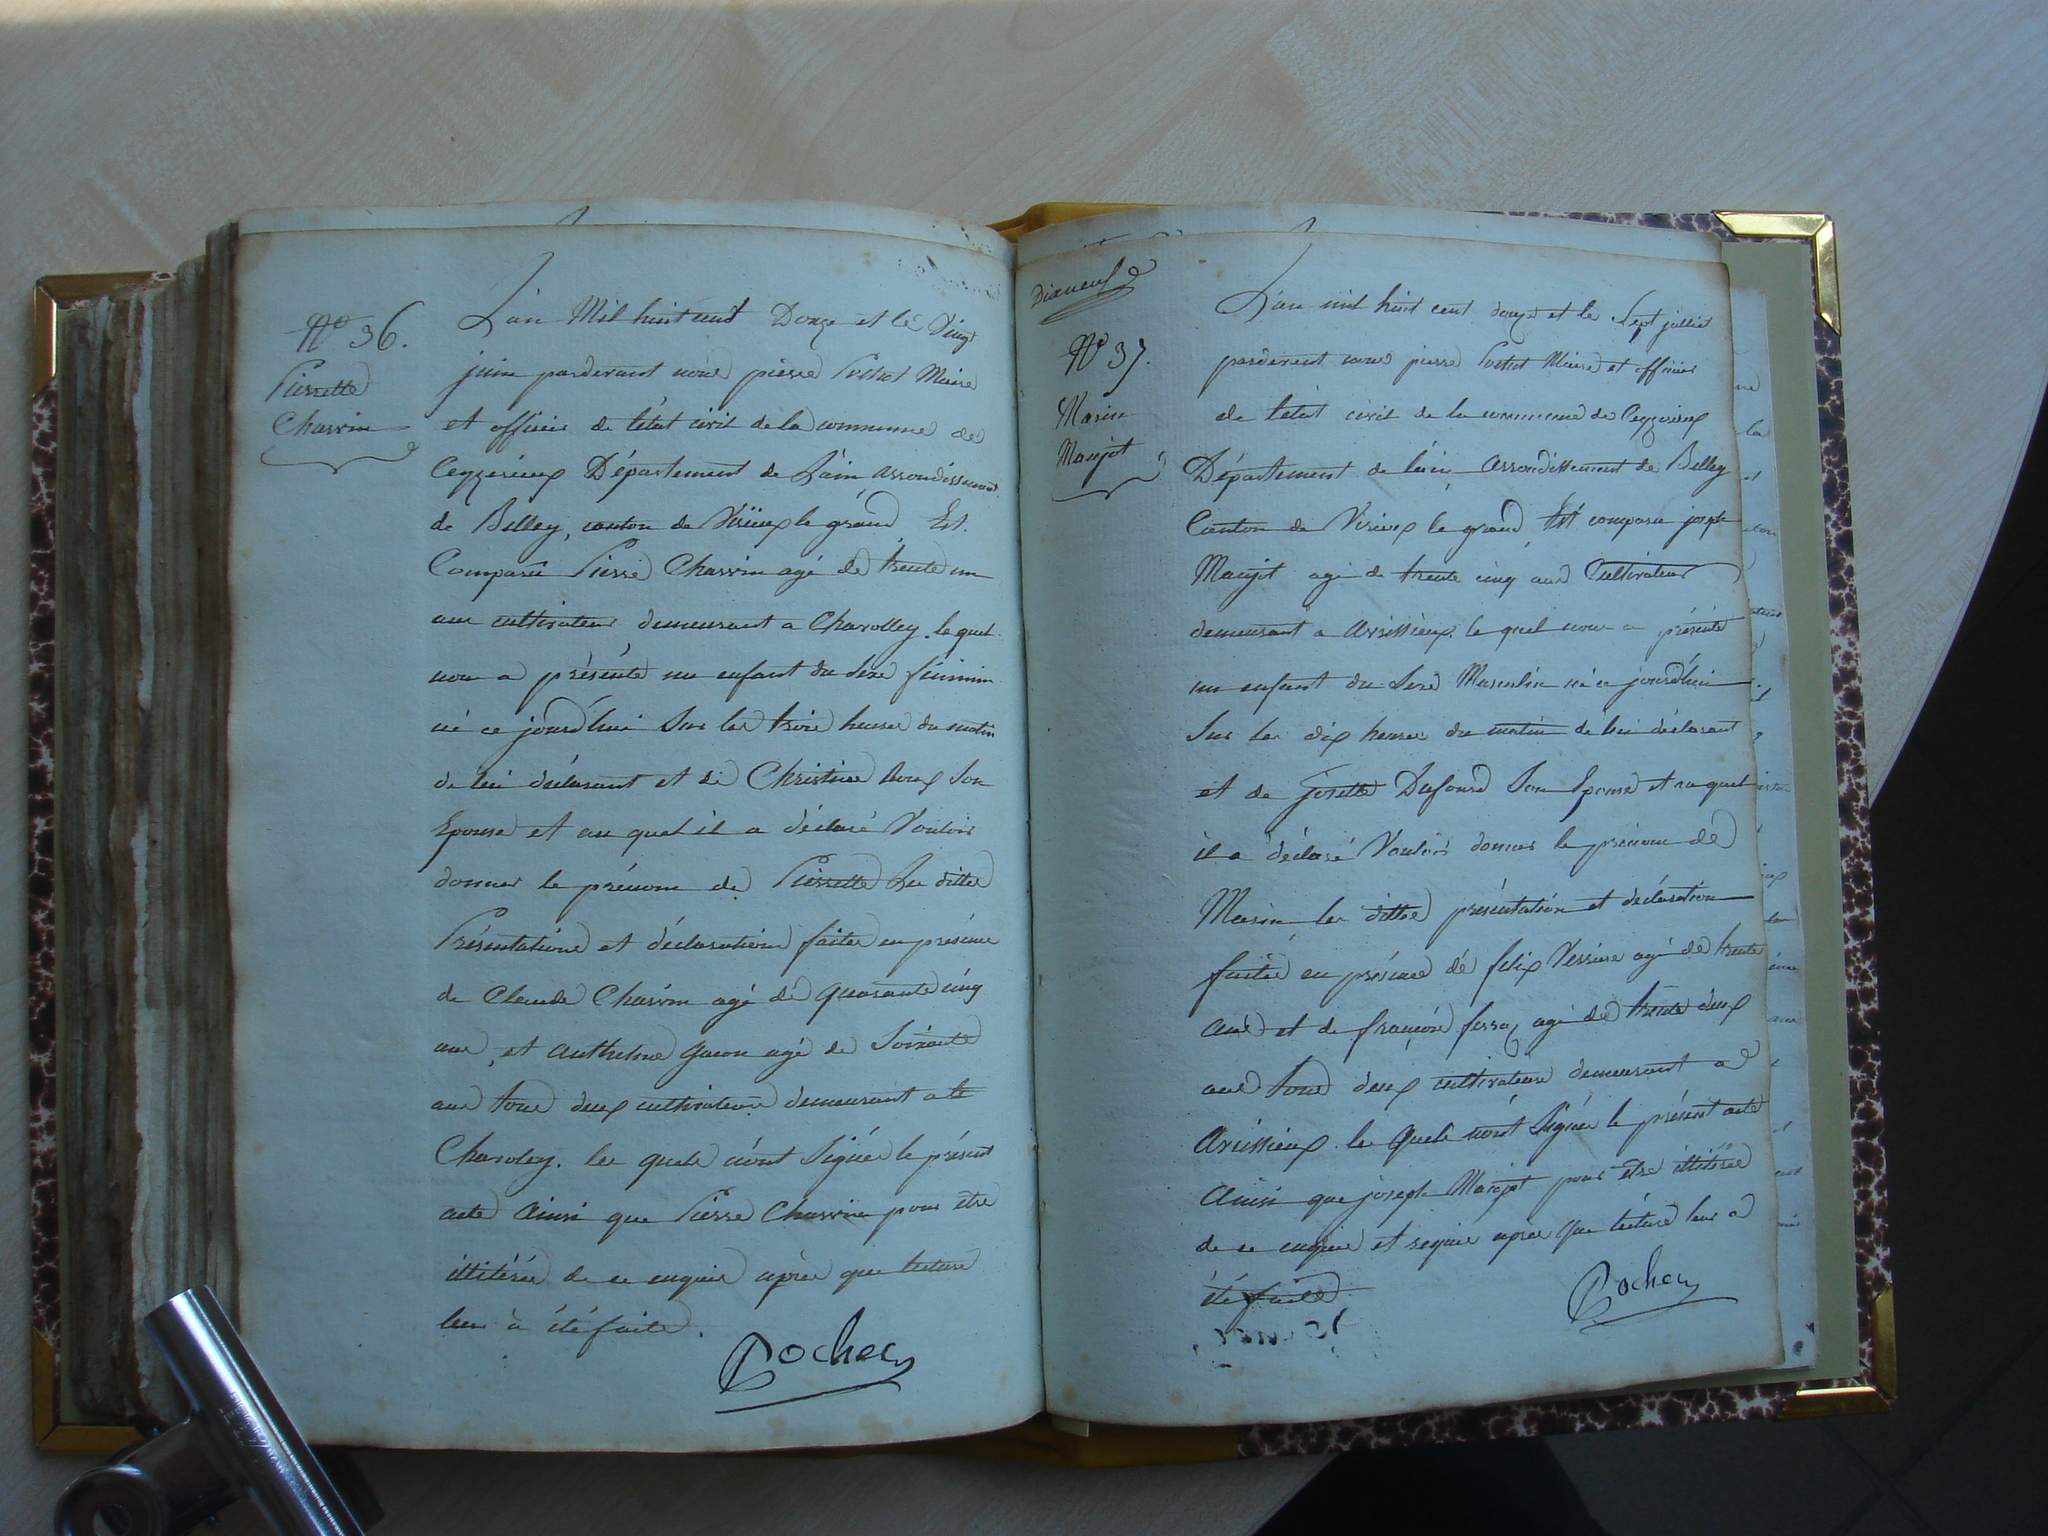 Nº 36.
Pierrette
Charvin
L'an Mil huit cent Douze et le Vingt
juin pardevant nous pierre Pochet Maire
et officier de létat civil de la commune de
Ceyzerieux Département de Lain arrondissement
de Belley, canton de Virieux le grand Est
Comparu Pierre Charvin agé de trente un
ans cultivateur demeurant a Charolley. le quel
nous a présenté un enfant du sexe féminin
né ce jourd'hui Sur les trois heures du matin
de lui déclarant et de Christine Son
Epouse et au quel il a déclaré Vouloir
donner le prénom de Pierrette Les dittes
Présentations et déclarations faites en présence
de Claude Charvin agé de quarante cinq
ans, et anthelme agé de Soixante
ans tous deux cultivateurs demeurant a
Charoley. les quels n'ont Signés le présent
acte Ainsi que Pierre Charvin pour etre
illitérés de ce enquis après que lecture
leur à été faite.
Pochet
Dixneuf
Nº 37.
Marin
Maujot
L'an mil huit cent douze et le Sept juillet
pardevent nous pierre Pochet Maire et officier
de létat civil de la commune de Ceyzerieux
Département de lain arrondissement de Belley
Canton de Virieux le grand Est comparu joseph
Maujot agé de trente cinq ans Cultivateur
demeurant a Avrissieux le quel nous a présenté
un enfant du Sexe Masculin né ce jourd'hui
Sur les dix heures du matin de lui déclarant
et de Josette Dufour Son Epouse et au quel
il a déclaré Vouloir donner le prénom de
Marin les dittes présentation et déclaration
faites en présence dé felix agé de trente
ans et de françois agé de trente deux
ans tous deux cultivateurs demeurant a
Avrissieux les quels n'ont Signés le présent acte
Ainsi que joseph Maujot pour etre illitérés
de ce enquis et requis après que lecture leur a
été faite
Pochet